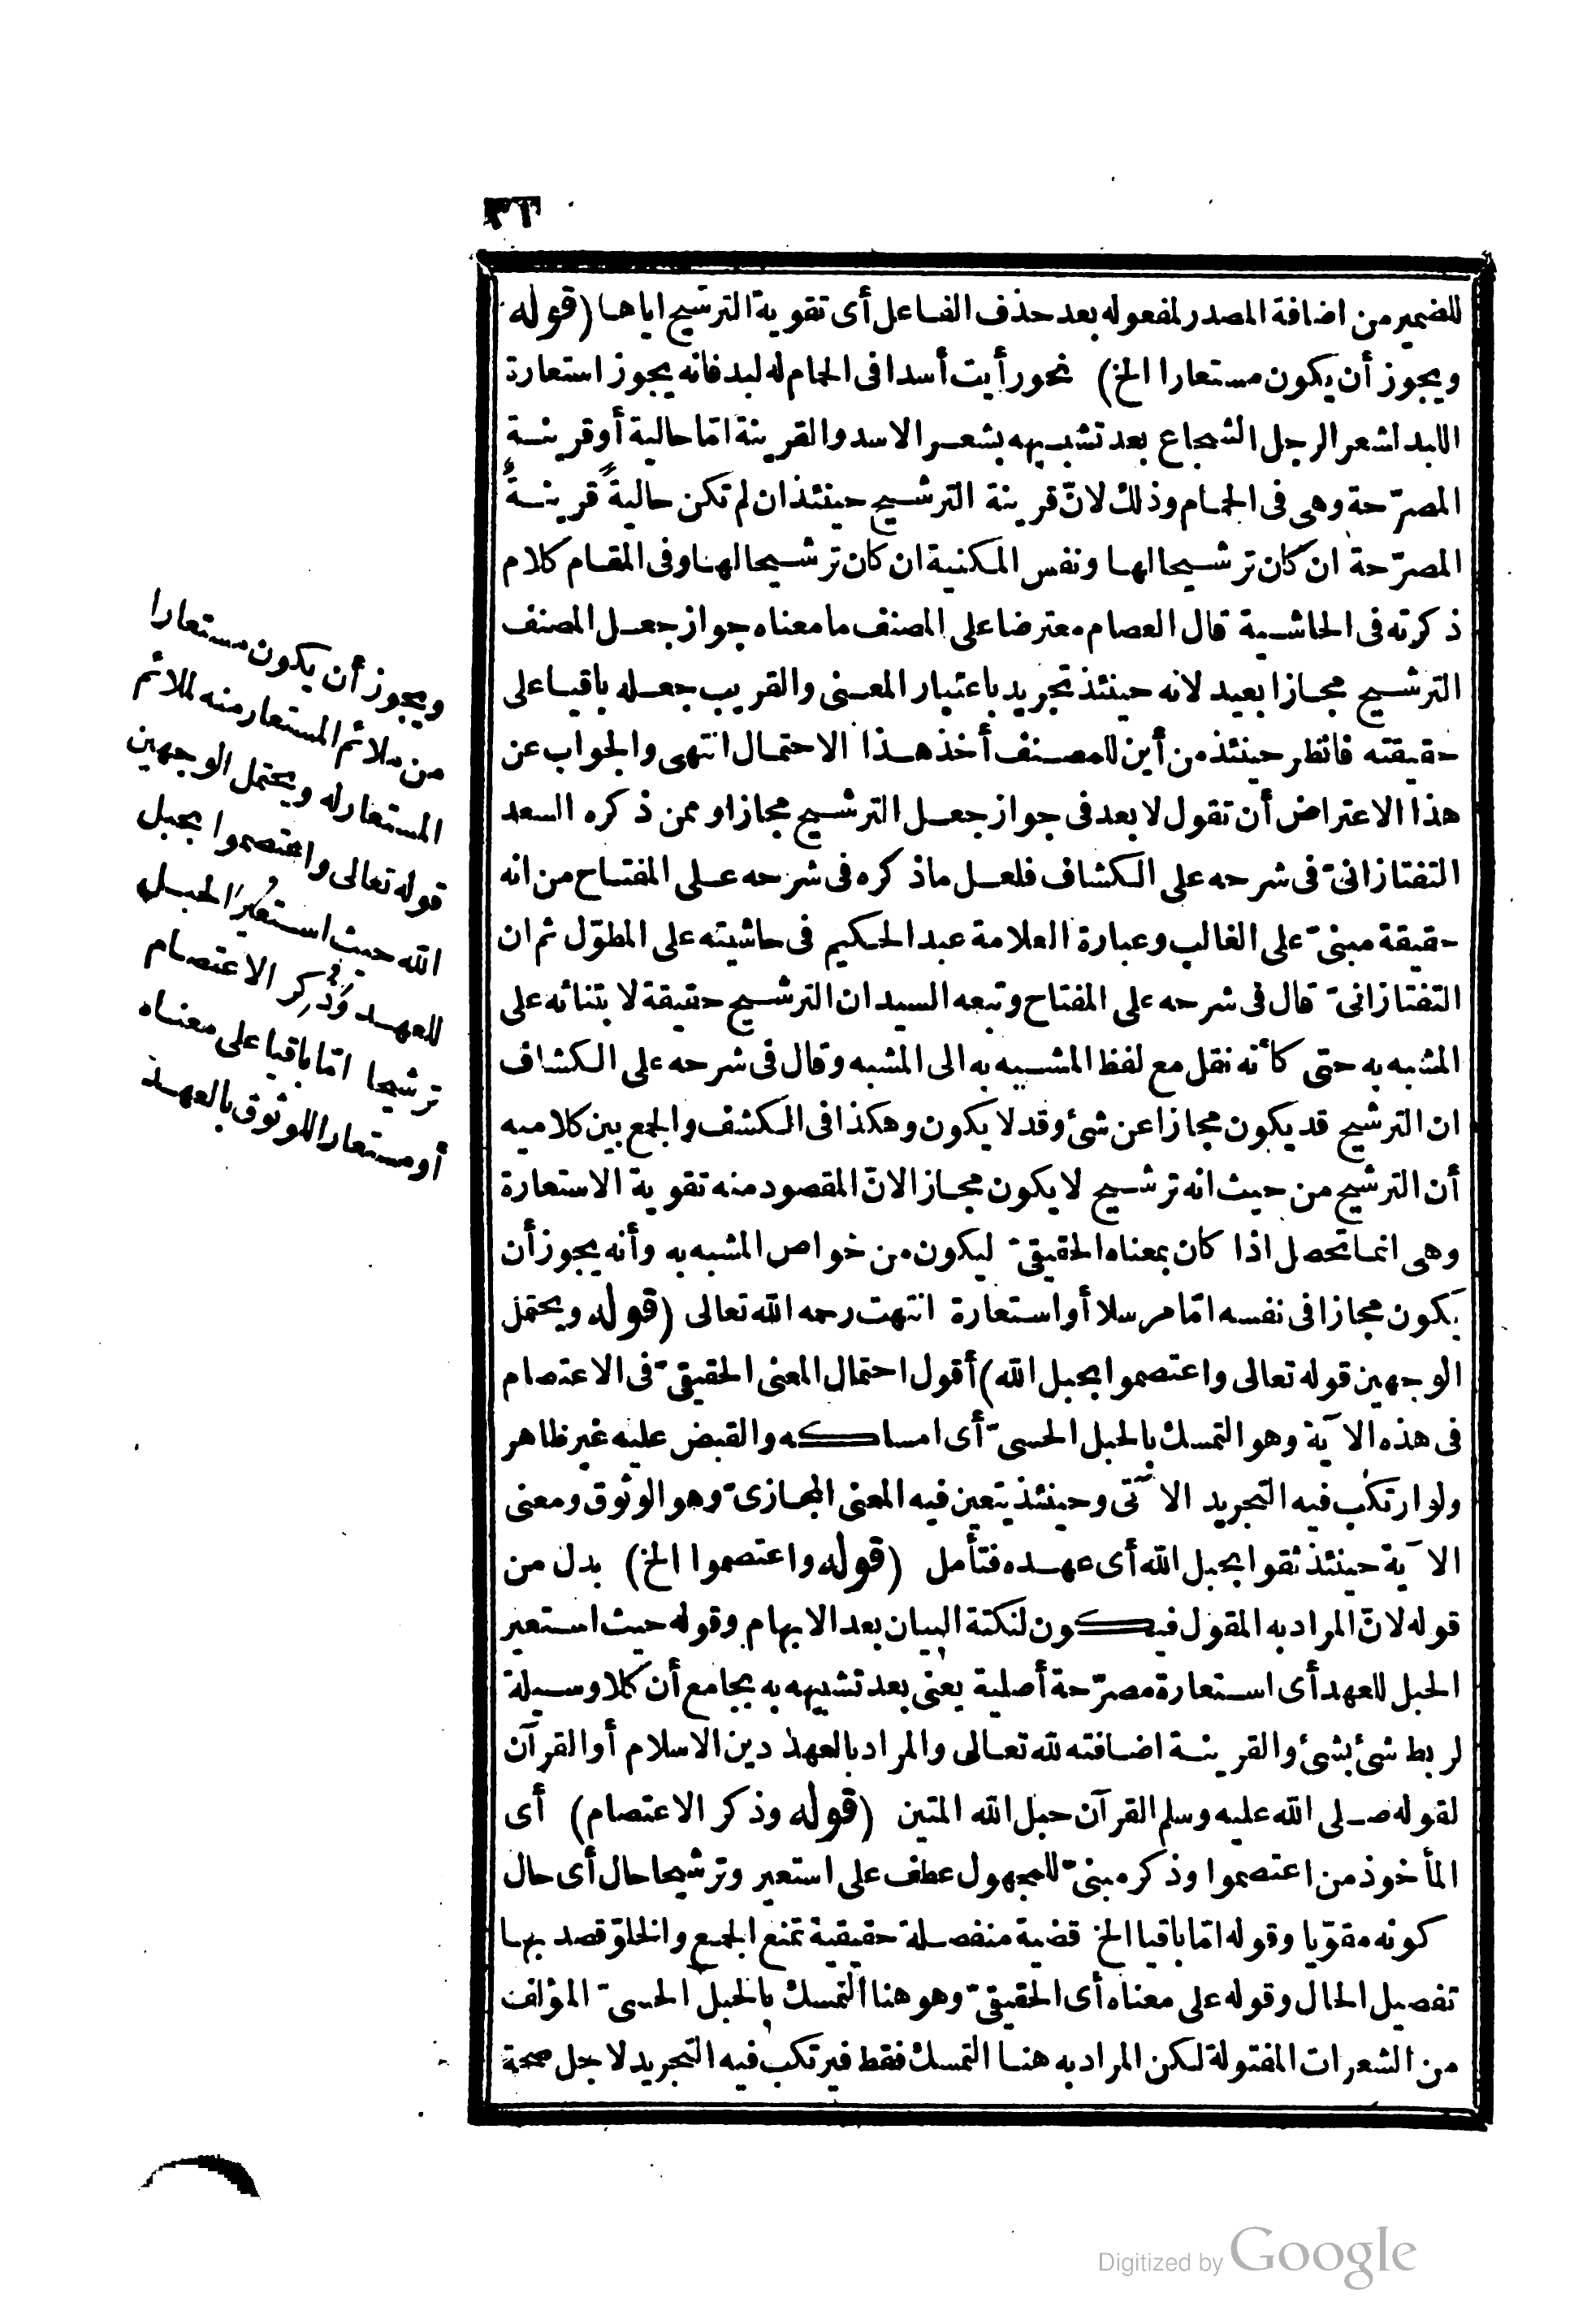 للضمير من اضافة المصدر لمفعوله بعد حذف الفاعل أى تقوية الترشيح اياها (قوله
ويجوز أن يكون مستعارا الخ) نحو رأيت أسدا فى الحمام له لبد فانه يجوز استعارة
اللبد لشعر الرجل الشجاع بعد تشبيهه بشعر الاسد والقرينة امّا حالية أو قرينة
المصرّحة وهى فى الحمام وذلك لانّ قرينة الترشيح حينئذ ان لم تكن حاليةً قرينةُ
المصرّحة ان كان ترشيحا لها ونفس المكنية ان كان ترشيحا لها وفى المقام كلام
ذكرته فى الحاشية قال العصام معترضا على المصنف ما معناه جواز جعل المصنف
الترشيح مجازا بعيد لانه حينئذ تجريد باعتبار المعنى والقريب جعله باقيا على
حقيقته فانظر حينئذ من أين للمصنف أخذ هذا الاحتمال انتهى والجواب عن
هذا الاعتراض أن تقول لا بعد فى جواز جعل الترشيح مجازا وممن ذكره السعد
التفتازانىّ فى شرحه على الكشاف فلعل ما ذكره فى شرحه على المفتاح من انه
حقيقة مبنىّ على الغالب وعبارة العلامة عبد الحكيم فى حاشيته على المطوّل ثم ان
التفتازانىّ قال فى شرحه على المفتاح وتبعه السيد ان الترشيح حقيقة لابتنائه على
المشبه به حتى كأنه نقل مع لفظ المشبه به الى المشبه وقال فى شرحه على الكشاف
ان الترشيح قد يكون مجازا عن شئ وقد لا يكون وهكذا فى الكشف والجمع بين كلاميه
أن الترشيح من حيث انه ترشيح لا يكون مجازا لانّ المقصود منه تقوية الاستعارة
وهى انما تحصل اذا كان بمعناه الحقيقىّ ليكون من خواص المشبه به وأنه يجوز أن
يكون مجازا فى نفسه امّا مرسلا أو استعارة انتهت رحمه الله تعالى (قوله ويحتمل
الوجهين قوله تعالى واعتصموا بحبل الله) أقول احتمال المعنى الحقيقىّ فى الاعتصام
فى هذه الآية وهو التمسك بالحبل الحسىّ أى امساكه والقبض عليه غير ظاهر
ولو ارتكب فيه التجريد الآتى وحينئذ يتعين فيه المعنى المجازىّ وهو الوثوق ومعنى
الآية حينئذ ثقوا بحبل الله أى عهده فتأمل (قوله واعتصموا الخ) بدل من
قوله لانّ المراد به المقول فيكون لنكتة البيان بعد الابهام وقوله حيث استعير
الحبل للعهد أى استعارة مصرّحة أصلية يعنى بعد تشبيهه به بجامع أن كلا وسيلة
لربط شئ بشئ والقرينة اضافته لله تعالى والمراد بالعهد دين الاسلام أو القرآن
لقوله صلى الله عليه وسلم القرآن حبل الله المتين (قوله وذكر الاعتصام) أى
المأخوذ من اعتصموا وذكر مبنىّ للمجهول عطف على استعير وترشيحا حال أى حال
كونه مقوّيا وقوله امّا باقيا الخ قضية منفصلة حقيقية تمنع الجمع والخلوّ قصد بها
تفصيل الحال وقوله على معناه أى الحقيقىّ وهو هنا التمسك بالحبل الحسىّ المؤلف
من الشعرات المفتولة لكن المراد به هنا التمسك فقط فيرتكب فيه التجريد لاجل صحة
ويجوز أن يكون مستعارا
من ملائم المستعار منه لملائم
المستعار له ويحتمل الوجهين
قوله تعالى واعتصموا بحبل
الله حيث استُعِيرَ الحبل
للعهد وَذُكِر الاعتصام
ترشيحا امّا باقيا على معناه
أو مستعارا للوثوق بالعهد
Digitized by Google